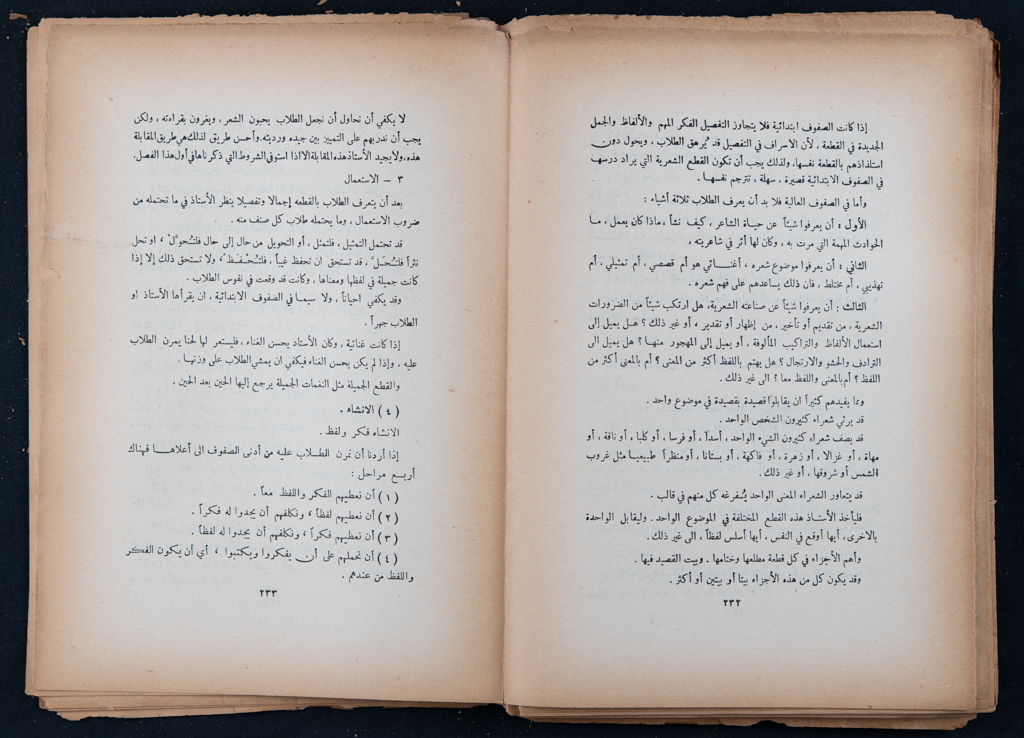 إذا كانت الصفوف ابتدائية فلا يتجاوز التفصيل الفكر المهم والألفاظ والجمل
الجديدة في القطعة ، لأن الاسراف في التفصيل قد يُرهق الطلاب ، ويحول دون
استلذاذهم بالقطعة نفسها، ولذلك يجب أن تكون القطع الشعرية التي يراد درسها
في الصفوف الابتدائية قصيرة ، سهلة ، تترجم نفسها .
وأما في الصفوف العالية فلا بد أن يعرف الطلاب ثلاثة أشياء :
الأول : أن يعرفوا شيئاً عن حياة الشاعر ، كيف نشأ ، ماذا كان يعمل ، ما
الحوادث المهمة التي مرت به ، وكان لها أثر في شاعريته ،
الثاني : أن يعرفوا موضوع شعره ، أغنائي هو أم قصصي ، أم تمثيلي ، أم
تهذيبي ، أم مختلط ، فان ذلك يساعدهم على فهم شعره .
الثالث : أن يعرفوا شيئاً عن صناعته الشعرية، هل ارتكب شيئاً من الضرورات
الشعرية ، من تقديم أو تأخير ، من إظهار أو تقدير ، أو غير ذلك ؟ هل يميل إلى
استعمال الألفاظ والتراكيب المألوفة ، أو يميل إلى المهجور منها ؟ هل يميل الى
الترادف والحشو والارتجال ؟ هل يهتم باللفظ أكثر من المعنى ؟ أم بالمعنى أكثر من
اللفظ ؟ أم بالمعنى واللفظ معا ؟ الى غير ذلك .
ومما يفيدهم كثيراً ان يقابلوا قصيدة بقصيدة في موضوع واحد .
قد يرثي شعراء كثيرون الشخص الواحد .
قد يصف شعراء كثيرون الشيء الواحد ، أسداً ، أو فرسا ، أو كلبا ، أو ناقة ، أو
مهاة ، أو غزالا ، أو زهرة ، أو فاكهة ، أو بستانا ، أو منظراً طبيعيا مثل غروب
الشمس أو شروقها ، أو غير ذلك .
قد يتعاور الشعراء المعنى الواحد يُفرغه كل منهم في قالب .
فليأخذ الأستاذ هذه القطع المختلفة في الموضوع الواحد . وليقابل الواحدة
بالاخرى، أيها أوقع في النفس ، أيها أسلس لفظاً ، الى غير ذلك .
وأهم الأجزاء في كل قطعة مطلعها وختامها . وبيت القصيد فيها .
وقد يكون كل من هذه الأجزاء بيتا أو بيتين أو أكثر .
٢٣٢
لا يكفي أن نحاول أن نجعل الطلاب يحبون الشعر ، ويغرون بقراءته ، ولكن
يجب أن ندربهم على التمييز بين جيده ورديئه. وأحسن طريق لذلك هي طريق المقابلة
هذه، ولا يجيد الأستاذ هذه المقابلة الا اذا استوفى الشروط التي ذكرناها في أول هذا الفصل.
٣ – الاستعمال
بعد أن يتعرف الطلاب بالقطعة إجمالا وتفصيلا ينظر الأستاذ في ما تحتمله من
ضروب الاستعمال ، وما يحتمله طلاب كل صنف منه .
قد تحتمل التمثيل ، فلتمثل ، أو التحويل من حال إلى حال فلتُحوَّل ، او تحل
نثراً فلتُحَلَّ ، قد تستحق ان تحفظ غيباً ، فلتُحفظ ، ولا تستحق ذلك إلا إذا
كانت جميلة في لفظها ومعناها ، وكانت قد وقعت في نفوس الطلاب .
وقد يكفي احياناً ، ولا سيما في الصفوف الابتدائية ، ان يقرأها الأستاذ او
الطلاب جهراً .
إذا كانت غنائية ، وكان الأستاذ يحسن الغناء ، فليستعر لها لحنا يمرن الطلاب
عليه ، وإذا لم يكن يحسن الغناء فيكفي ان يمشي الطلاب على وزنها .
والقطع الجميلة مثل النغمات الجميلة يرجع إليها الحين بعد الحين .
( ٤ ) الانشاء .
الانشاء فكر ولفظ .
إذا أردنا أن نمرن الطلاب عليه من أدنى الصفوف الى أعلاها فهناك
أربع مراحل :
( ١ ) أن نعطيهم الفكر واللفظ معاً .
( ٢ ) أن نعطيهم لفظاً ، ونكلفهم أن يجدوا له فكراً .
( ٣ ) أن نعطيهم فكراً ، ونكلفهم أن يجدوا له لفظاً .
( ٤ ) أن نحملهم على أن يفكروا ويكتبوا ، أي أن يكون الفكر
واللفظ من عندهم .
٢٣٣